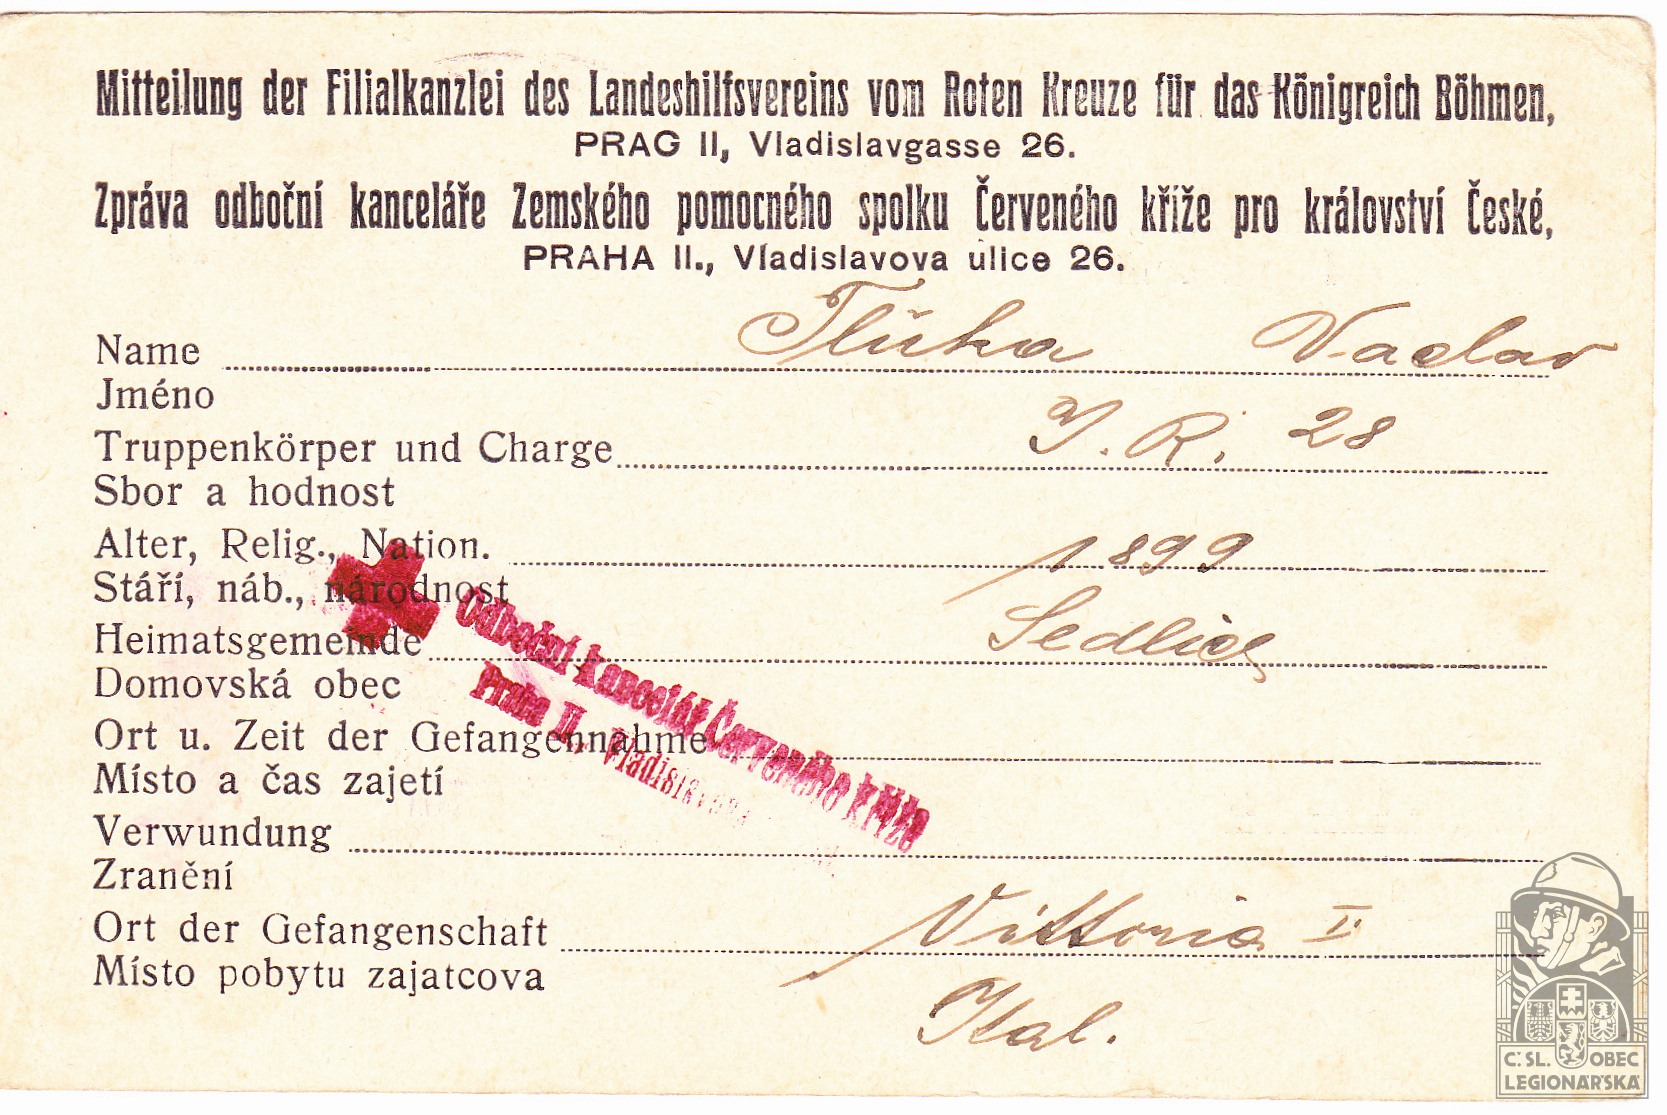 Mitteilung der Filialkanzlei des Landeshilfsvereins vom Roten Kreuze für das Königreich Böhmen,
PRAG II, Vladislavgasse 26.
Zpráva odboční kanceláře Zemského pomocného spolku Červeného kříže pro království České,
PRAHA II., Vladislavova ulice 26.
Name Vaclav
Jméno
Truppenkörper und Charge I. R. 28
Sbor a hodnost
Alter, Relig., Nation. 1899
Stáří, náb., národnost
Heimatsgemeinde Sedlic
Domovská obec
Odboční kancelář Červeného kříže
Praha II., Vladislavova
Ort u. Zeit der Gefangennahme
Místo a čas zajetí
Verwundung
Zranění
Ort der Gefangenschaft Vittoria I.
Místo pobytu zajatcova
Ital.
Č. SL. OBEC
LEGIONÁŘSKÁ